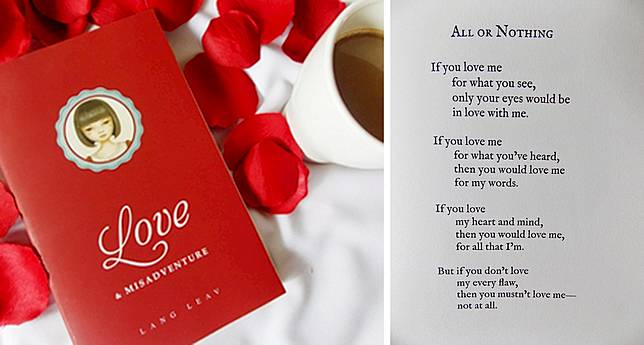 Love
& MISADVENTURE
LANG LEAV
ALL OR NOTHING
If you love me
for what you see,
only your eyes would be
in love with me.
If you love me
for what you've heard,
then you would love me
for my words.
If you love
my heart and mind,
then you would love me,
for all that I'm.
But if you don't love
my every flaw,
then you mustn't love me—
not at all.